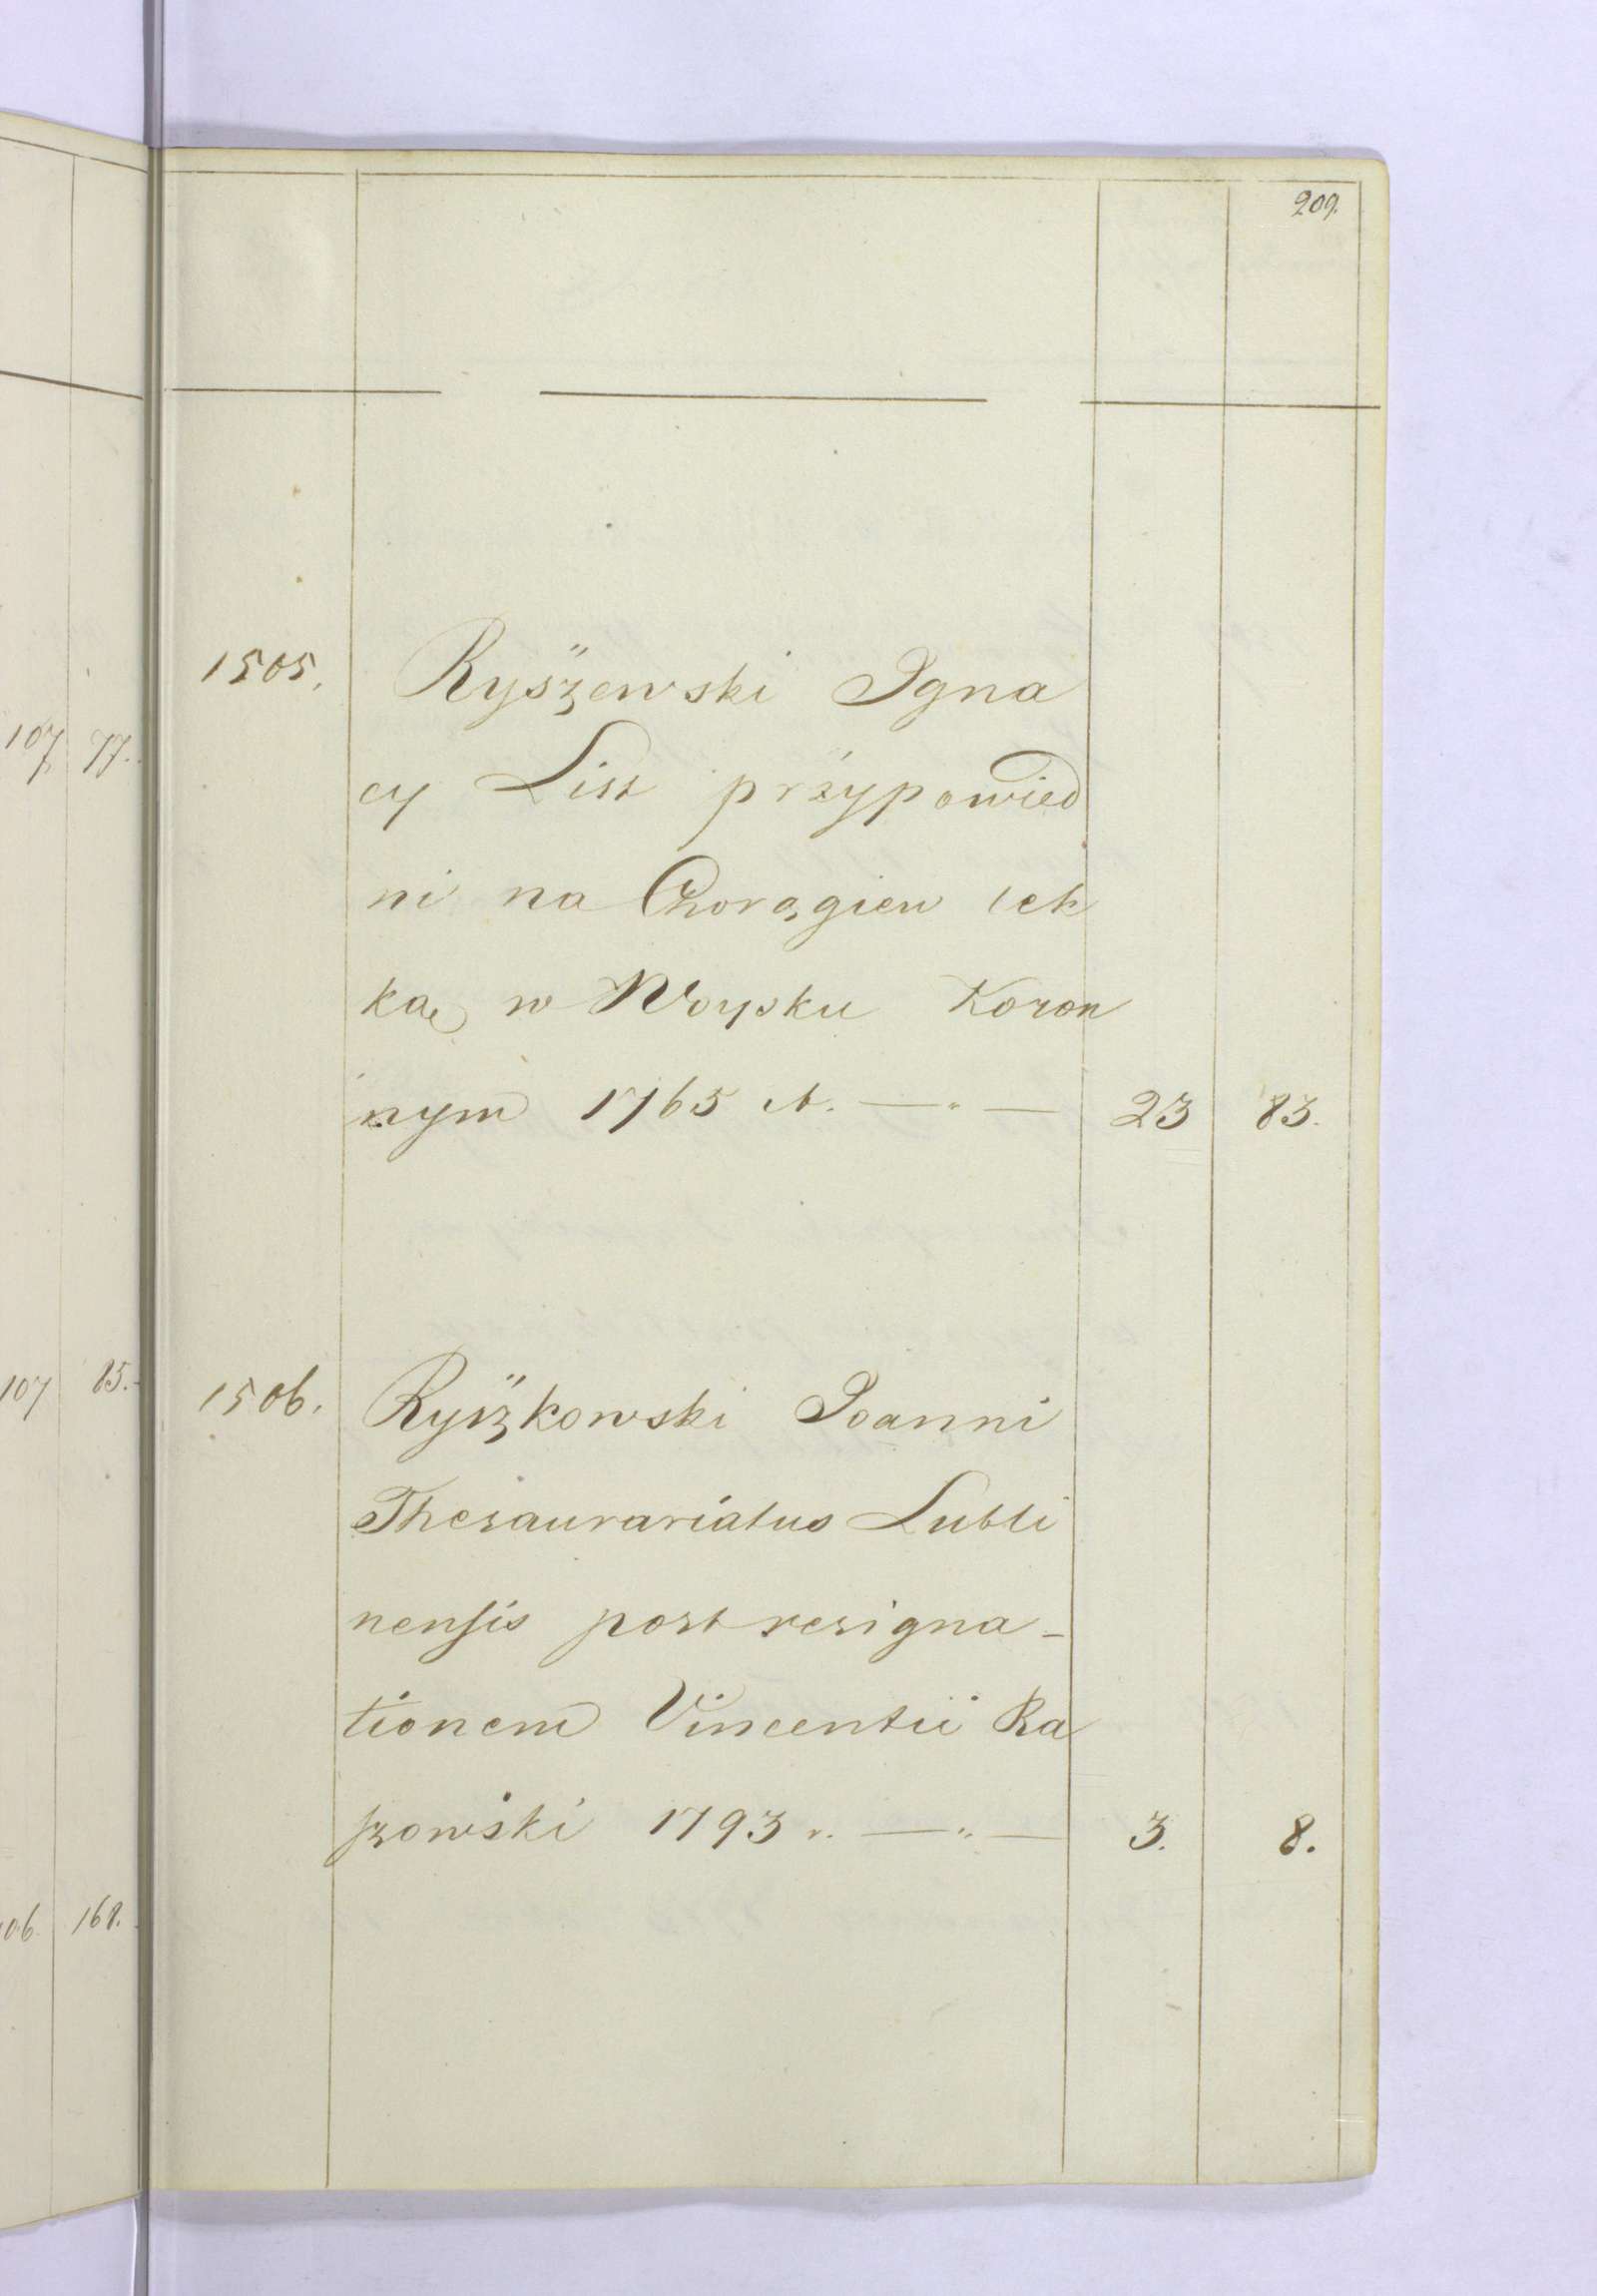 209.
1505. Ryszewski Igna
cy List przypowied
ni na Chorągiew lek
ką w Woysku Koron
nym 1765 r. —"— 23 83.
1506. Ryszkowski Joanni
Thesaurariatus Lubli
nensis post resigna-
tionem Vincentii Ra
szowski 1793 r. —"— 3. 8.
107 77.
107 85.
106 168.